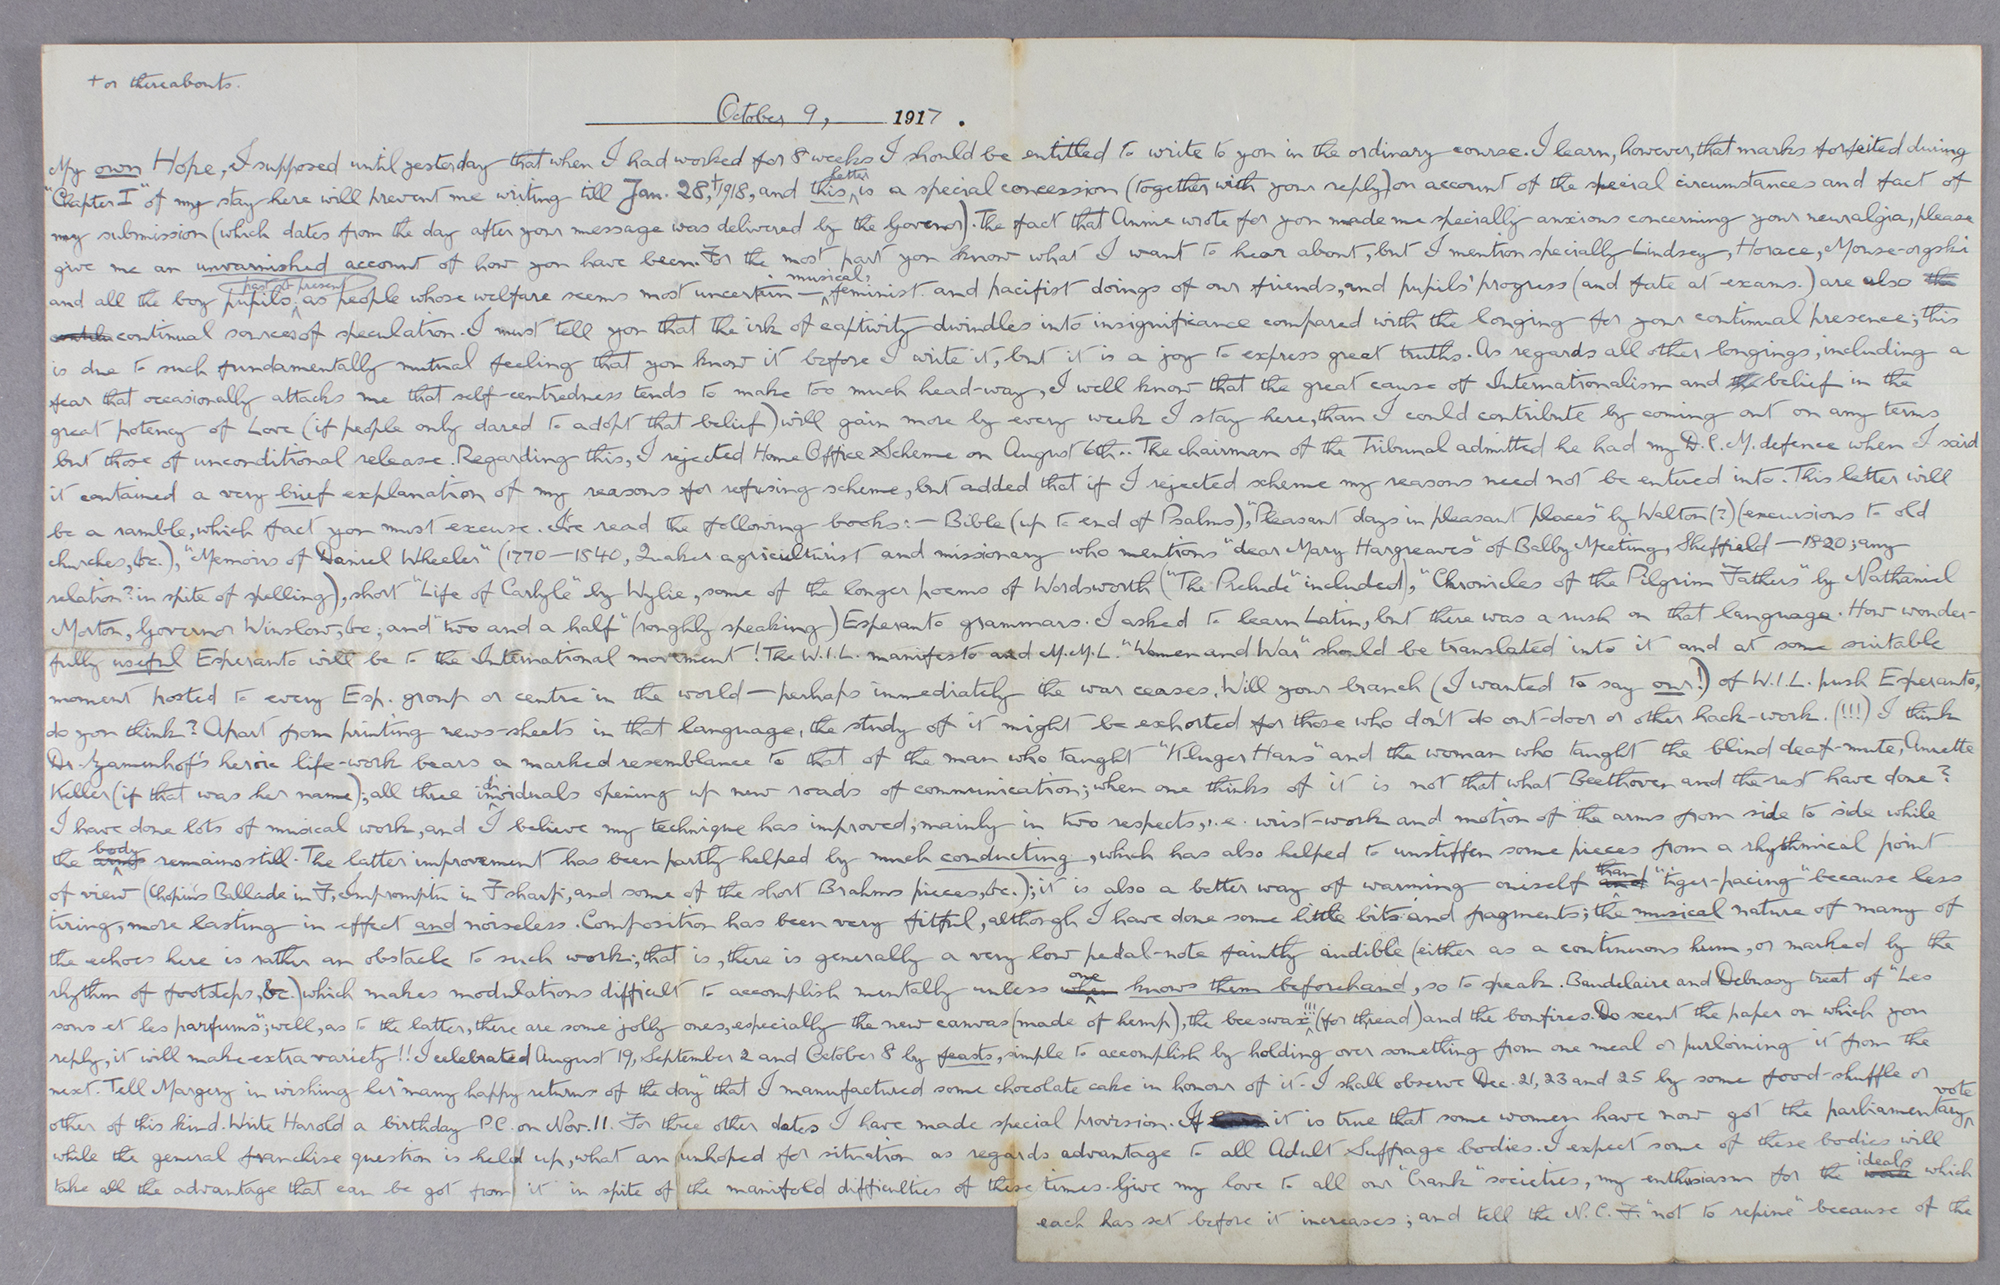 + or thereabouts.
October 9, 1917.
My own Hope, I supposed until yesterday that when I had worked for 8 weeks I should be entitled to write to you in the ordinary course. I learn, however, that marks forfeited during
"Chapter I" of my stay here will prevent me writing till Jan. 28,+ 1918, and this letter is a special concession (together with your reply) on account of the special circumstances and fact of
my submission (which dates from the day after your message was delivered by the Governor). The fact that Annie wrote for you made me specially anxious concerning your neuralgia, please
give me an unvarnished account of how you have been. For the most part you know what I want to hear about, but I mention specially Lindsey, Horace, Mouse-orgski
and all the boy pupils, past & present as people whose welfare seems most uncertain — musical, feminist and pacifist doings of our friends, and pupils' progress (and fate at exams.) are also the
continual sources of speculation. I must tell you that the irk of captivity dwindles into insignificance compared with the longing for your continual presence; this
is due to such fundamentally mutual feeling that you know it before I write it, but it is a joy to express great truths. As regards all other longings, including a
fear that occasionally attacks me that self-centredness tends to make too much head-way, I well know that the great cause of Internationalism and the belief in the
great potency of Love (if people only dared to adopt that belief) will gain more by every week I stay here, than I could contribute by coming out on any terms
but those of unconditional release. Regarding this, I rejected Home Office Scheme on August 6th.. The chairman of the Tribunal admitted he had my D.C.M. defence when I said
it contained a very brief explanation of my reasons for refusing scheme, but added that if I rejected scheme my reasons need not be entered into. This letter will
be a ramble, which fact you must excuse. I've read the following books: — Bible (up to end of Psalms), "Pleasant days in pleasant places" by Walton (?) (excursions to old
churches, &c.), "Memoirs of Daniel Wheeler" (1770—1840, Quaker agriculturist and missionary who mentions "dear Mary Hargreaves" of Balby Meeting, Sheffield — 1820; any
relation? in spite of spelling), short "Life of Carlyle" by Wylie, some of the longer poems of Wordsworth ("The Prelude" included), "Chronicles of the Pilgrim Fathers" by Nathaniel
Morton, Governor Winslow, &c; and "two and a half" (roughly speaking) Esperanto grammars. I asked to learn Latin, but there was a rush on that language. How wonder-
fully useful Esperanto will be to the International movement! The W.I.L. manifesto and M.M.L. "Women and War" should be translated into it and at some suitable
moment posted to every Esp. group or centre in the world — perhaps immediately the war ceases. Will your branch (I wanted to say our!) of W.I.L. push Esperanto,
do you think? Apart from printing news-sheets in that language, the study of it might be exhorted for those who don't do out-door or other hack-work. (!!!) I think
Dr. Zamenhof's heroic life-work bears a marked resemblance to that of the man who taught "Kluger Hans" and the woman who taught the blind deaf-mute, Annette
Keller (if that was her name); all three individuals opening up new roads of communication; when one thinks of it is not that what Beethoven and the rest have done?
I have done lots of musical work, and I believe my technique has improved, mainly in two respects, i.e. wrist-work and motion of the arms from side to side while
the arms body remains still. The latter improvement has been partly helped by much conducting, which has also helped to unstiffen some pieces from a rhythmical point
of view (Chopin's Ballade in F, Impromptu in F sharp, and some of the short Brahms pieces, &c.); it is also a better way of warming oneself and than "tiger-pacing" because less
tiring, more lasting in effect and noiseless. Composition has been very fitful, although I have done some little bits and fragments; the musical nature of many of
the echoes here is rather an obstacle to such work; that is, there is generally a very low pedal-note faintly audible (either as a continuous hum, or marked by the
rhythm of footsteps, &c.) which makes modulations difficult to accomplish mentally unless when one knows them beforehand, so to speak. Baudelaire and Debussy treat of "Les
sons et les parfums"; well, as to the latter, there are some jolly ones, especially the new canvas (made of hemp), the beeswax!!! (for thread) and the bonfires. Do scent the paper on which you
reply, it will make extra variety!! I celebrated August 19, September 2 and October 8 by feasts, simple to accomplish by holding over something from one meal or purloining it from the
next. Tell Margery in wishing her "many happy returns of the day" that I manufactured some chocolate cake in honour of it. I shall observe Dec. 21, 23 and 25 by some food-shuffle or
other of this kind. Write Harold a birthday P.C. on Nov. 11. For three other dates I have made special provision. If it is true that some women have now got the parliamentary vote
while the general franchise question is held up, what an unhoped for situation as regards advantage to all Adult Suffrage bodies. I expect some of these bodies will
take all the advantage that can be got from it in spite of the manifold difficulties of these times. Give my love to all our "Crank" societies, my enthusiasm for the ideals which
each has set before it increases; and tell the N.C.F. "not to repine" because of the